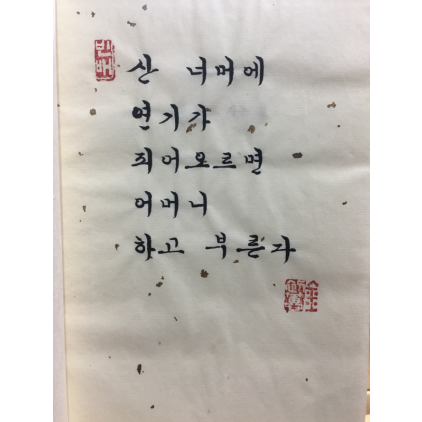 빈배
산 너머에
연기가
피어오르면
어머니
하고 부른다